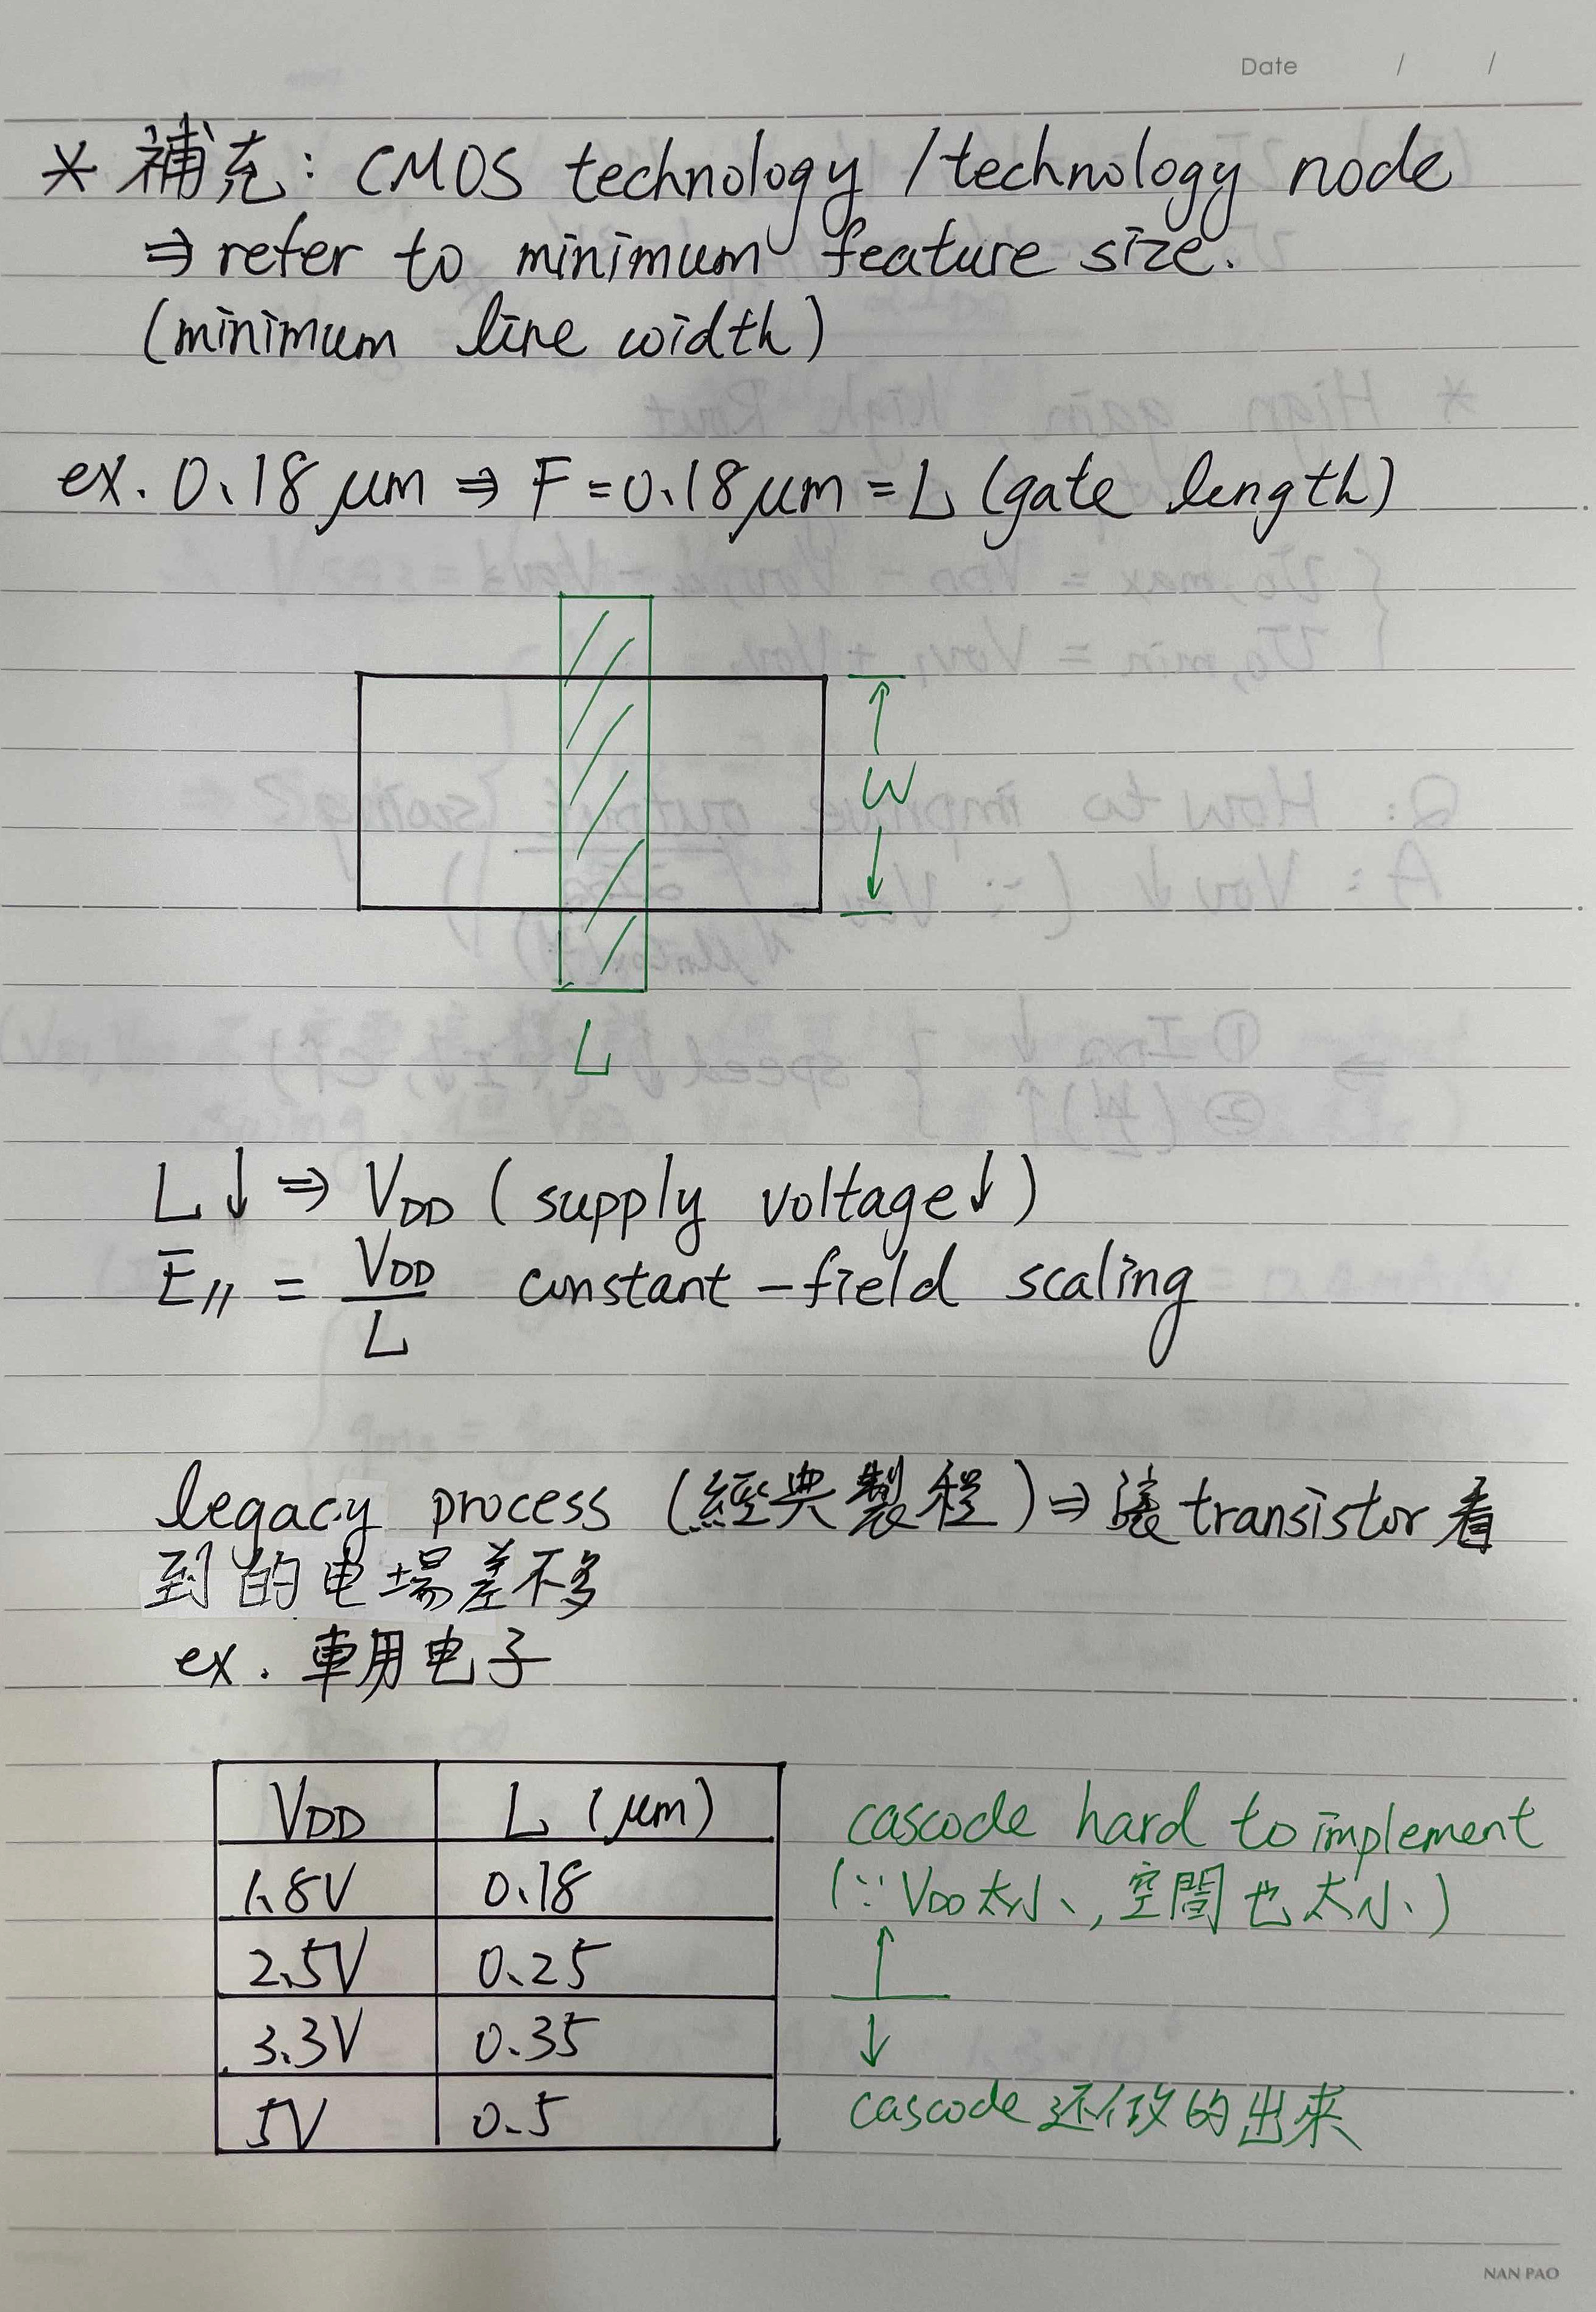 Date / /
* 補充: CMOS technology / technology node
⇒ refer to minimum feature size.
(minimum line width)
ex. 0.18 μm ⇒ F = 0.18 μm = L (gate length)
W
L
L↓ ⇒ VDD (supply voltage↓)
E// = VDD / L constant-field scaling
legacy process (經典製程) ⇒ 讓 transistor 看
到的电場差不多
ex. 車用电子
VDD L (μm)
1.8V 0.18
2.5V 0.25
3.3V 0.35
5V 0.5
cascode hard to implement
(∵ VDD太小, 空間也太小)
↑
↓
cascode 还做的出來
NAN PAO